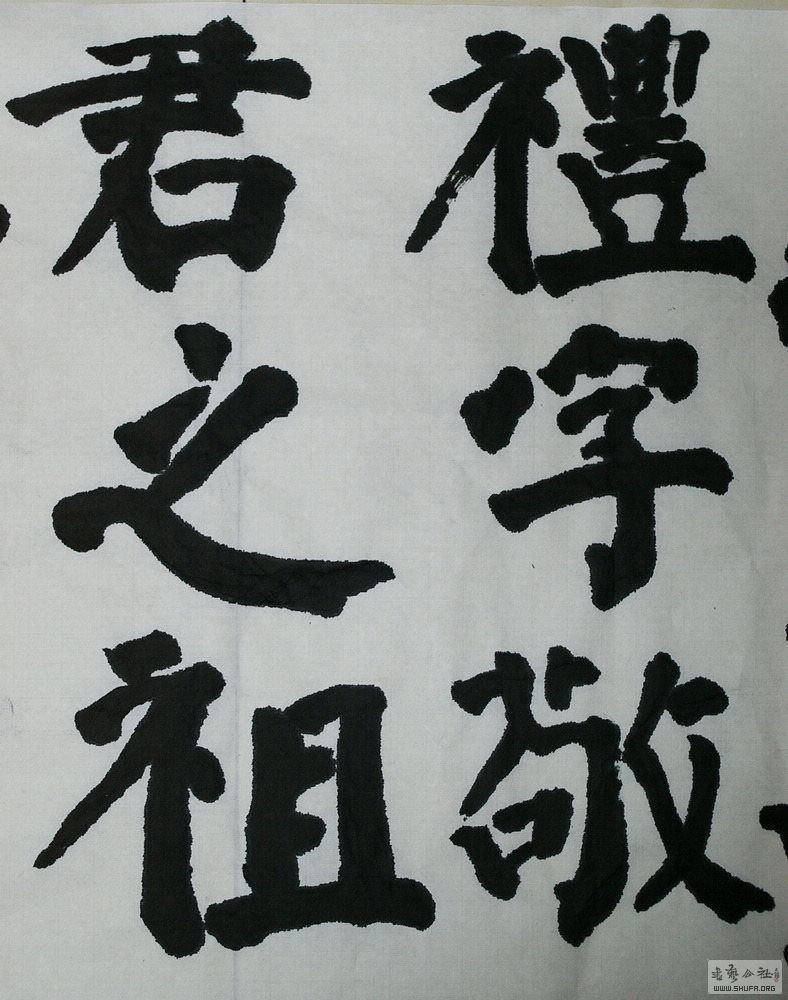 禮字敬
君之祖
WWW.SHUFA.ORG